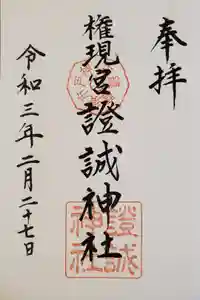 奉拝
権現宮證誠神社
令和三年二月二十七日
證誠
神社